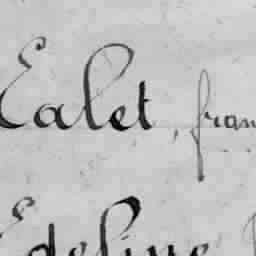 Calet, fran
Edeline